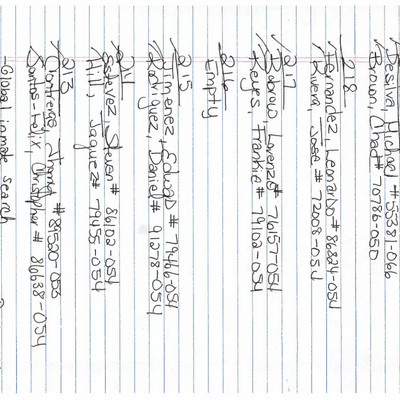 Desilva, Michael # 55381-066
Brown, Chad # 70786-050
218
Fernandez, Leonardo # 86824-054
Rivera, Jose # 72008-054
217
Lorenzo # 76157-054
Reyes, Frankie # 79102-054
216
Empty
215
Jimenez, # 79466-054
Rodriguez, Daniel # 91278-054
214
Estevez, Steven # 86102-054
Hill, Jaquez # 79455-054
213
Contreras,
Santos-Felix, Christopher # 86638-054
-Global inmate search